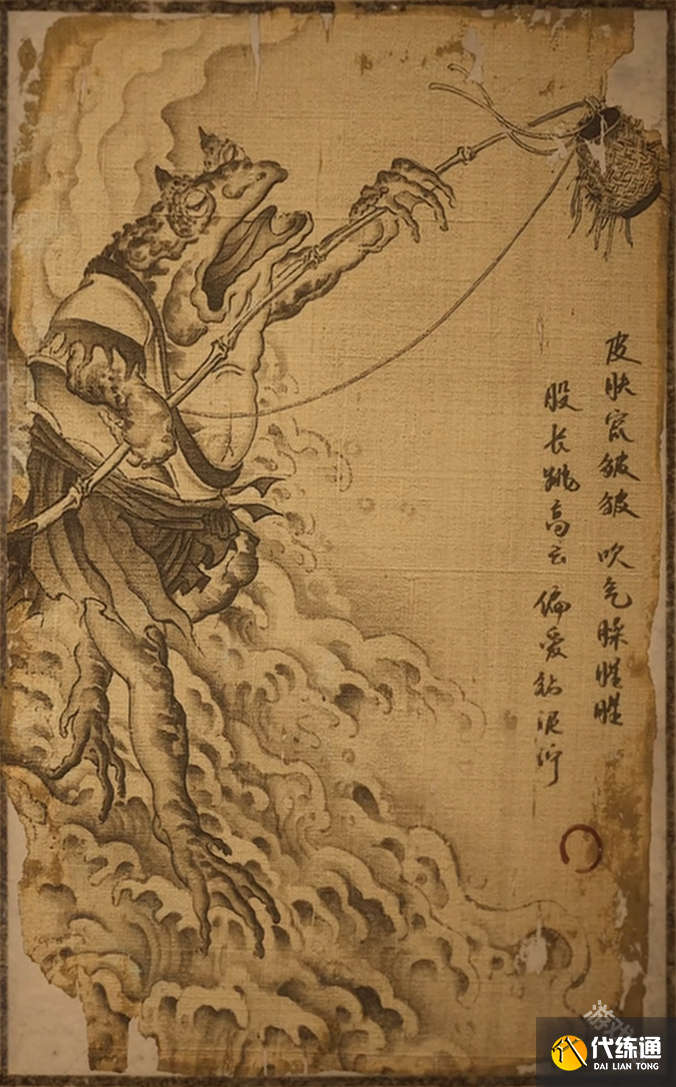 皮肤皱皱 吹气臊腥腥
股长跳高云 偏爱钻泥泞
代练通
DAI LIAN TONG